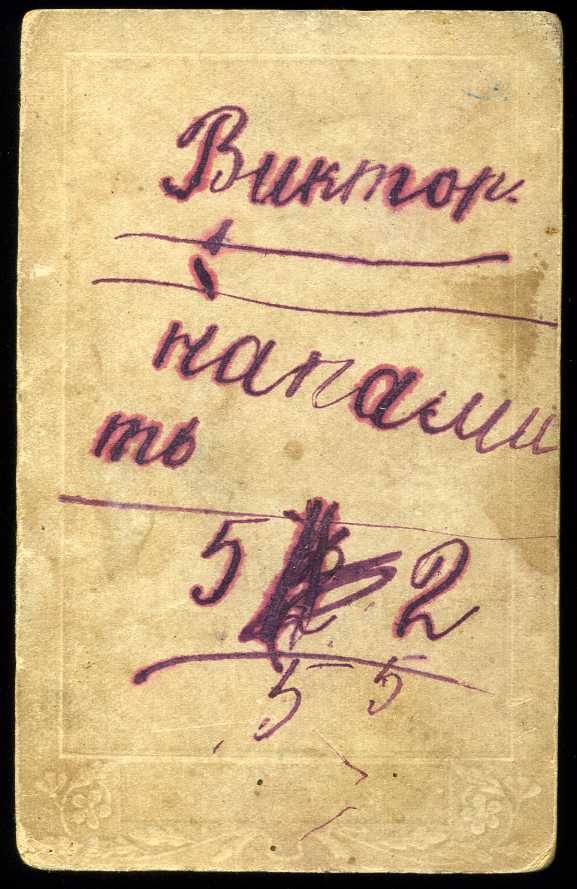 Виктор.
напами
ть
5 2
5 5